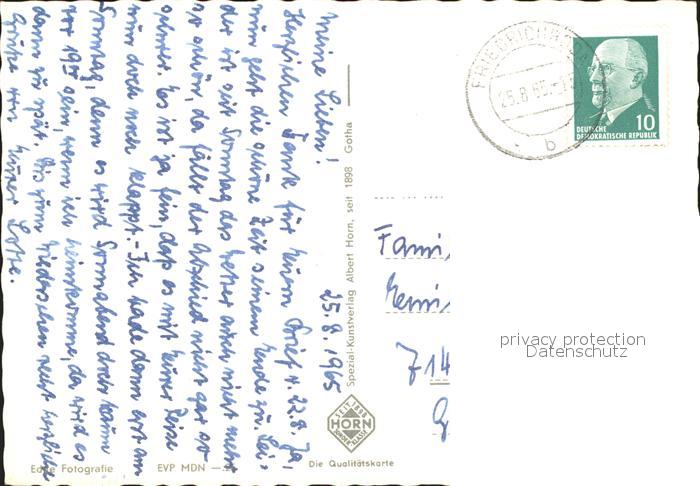 25.8.1965
Meine Lieben!
Herzlichen Dank für Euren Brief v. 22.8. Ja,
nun geht die schöne Zeit seinem Ende zu. Lei-
der ist seit Sonntag das Wetter auch nicht mehr
so schön, da fällt der Abschied nicht gar so
schwer. Es ist ja fein, dass es mit Eurer Reise
nun doch noch klappt. - Ich bade dann erst am
Sonntag, denn es wird Sonnabend doch kaum
vor 19 00 sein, wenn ich heimkomme, da wird es
dann zu spät. Bis zum Wiedersehen recht herzliche
Grüße von Eurer Lotte.
Echte Fotografie EVP MDN
Spezial-Kunstverlag Albert Horn, seit 1898 Gotha
SEIT 1898
HORN
KUNDEN KLASSE
Die Qualitätskarte
25.8.65
b
10
DEUTSCHE
DEMOKRATISCHE REPUBLIK
Fami
714
privacy protection
Datenschutz